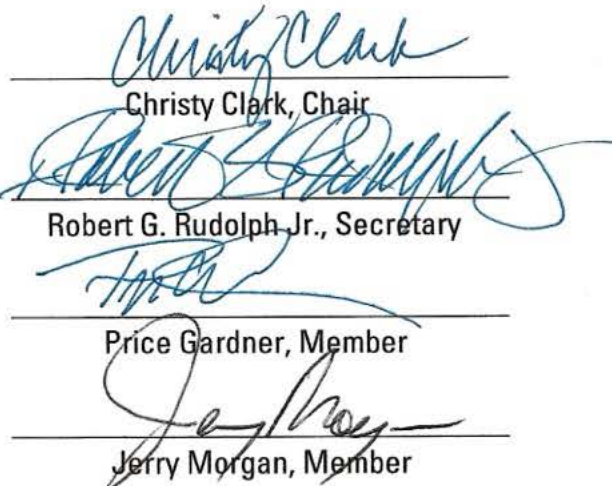 Christy Clark
Christy Clark, Chair
Robert G Rudolph Jr
Robert G. Rudolph Jr., Secretary
Price Gardner, Member
Jerry Morgan
Jerry Morgan, Member